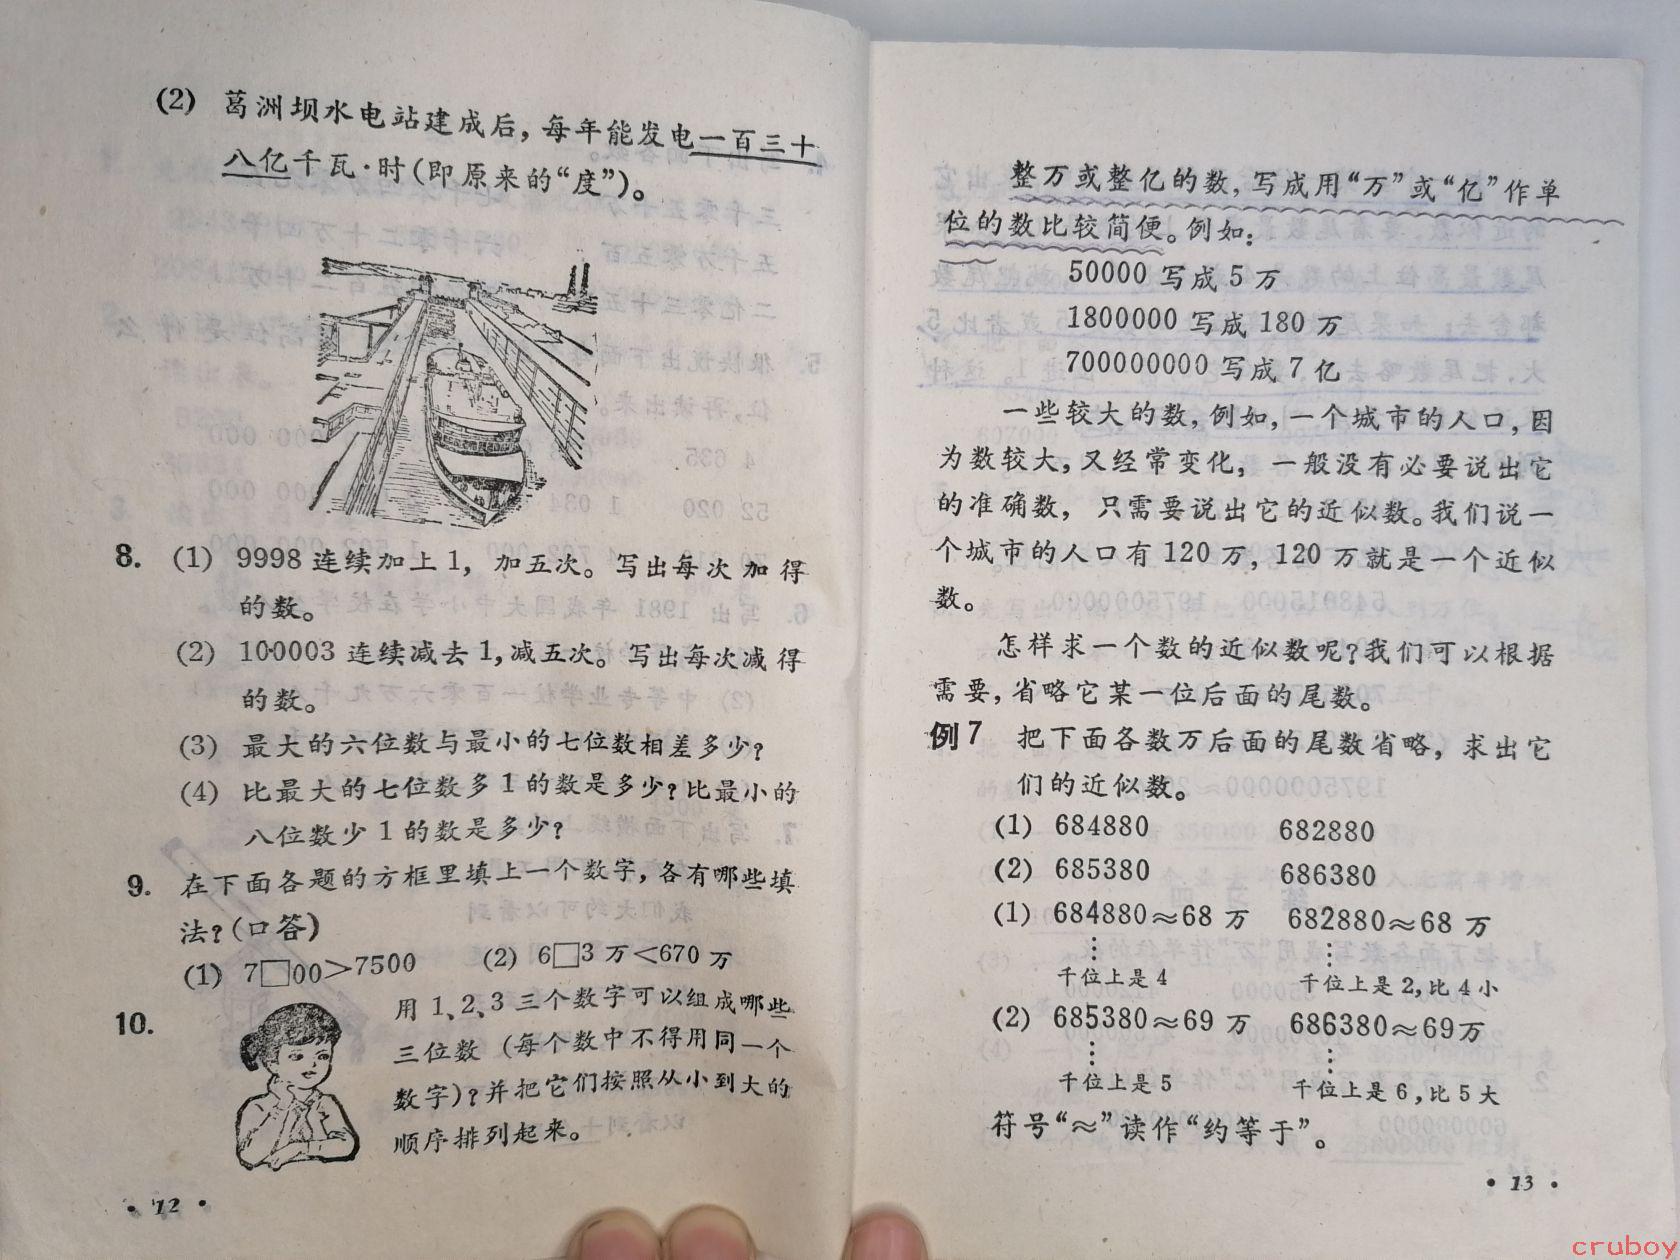 (2) 葛洲坝水电站建成后，每年能发电一百三十
八亿千瓦·时(即原来的“度”)。
8. (1) 9998 连续加上 1，加五次。写出每次加得
的数。
(2) 100003 连续减去 1，减五次。写出每次减得
的数。
(3) 最大的六位数与最小的七位数相差多少？
(4) 比最大的七位数多 1 的数是多少？比最小的
八位数少 1 的数是多少？
9. 在下面各题的方框里填上一个数字，各有哪些填
法？(口答)
(1) 7□00＞7500 (2) 6□3 万＜670 万
10. 用 1、2、3 三个数字可以组成哪些
三位数 (每个数中不得用同一个
数字)？并把它们按照从小到大的
顺序排列起来。
· 12 ·
整万或整亿的数，写成用“万”或“亿”作单
位的数比较简便。例如：
50000 写成 5 万
1800000 写成 180 万
700000000 写成 7 亿
一些较大的数，例如，一个城市的人口，因
为数较大，又经常变化，一般没有必要说出它
的准确数，只需要说出它的近似数。我们说一
个城市的人口有 120 万，120 万就是一个近似
数。
怎样求一个数的近似数呢？我们可以根据
需要，省略它某一位后面的尾数。
例7 把下面各数万后面的尾数省略，求出它
们的近似数。
(1) 684880 682880
(2) 685380 686380
(1) 684880≈68 万 682880≈68 万
千位上是 4 千位上是 2，比 4 小
(2) 685380≈69 万 686380≈69万
千位上是 5 千位上是 6，比 5 大
符号“≈”读作“约等于”。
· 13 ·
cruboy